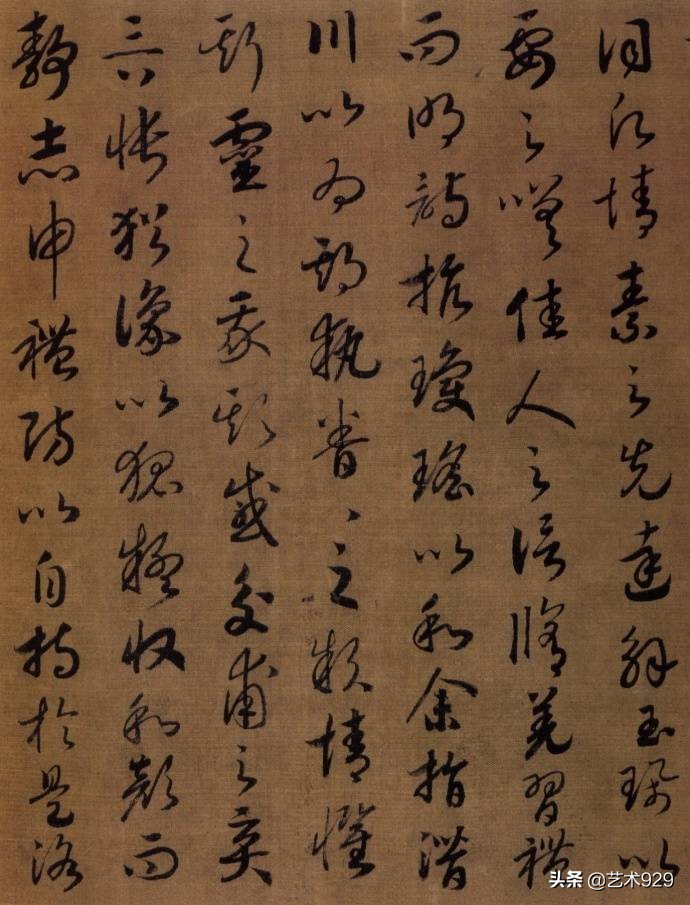 情素之先達解玉珮以
要之嗟佳人之信脩羌習禮
而明詩抗瓊瑤以和余指潛
川以為期執眷々之款情懼
斯靈之我欺感交甫之棄
言悵猶豫以狐疑收和顏而
靜志申禮防以自持於是洛
头条 @艺术929